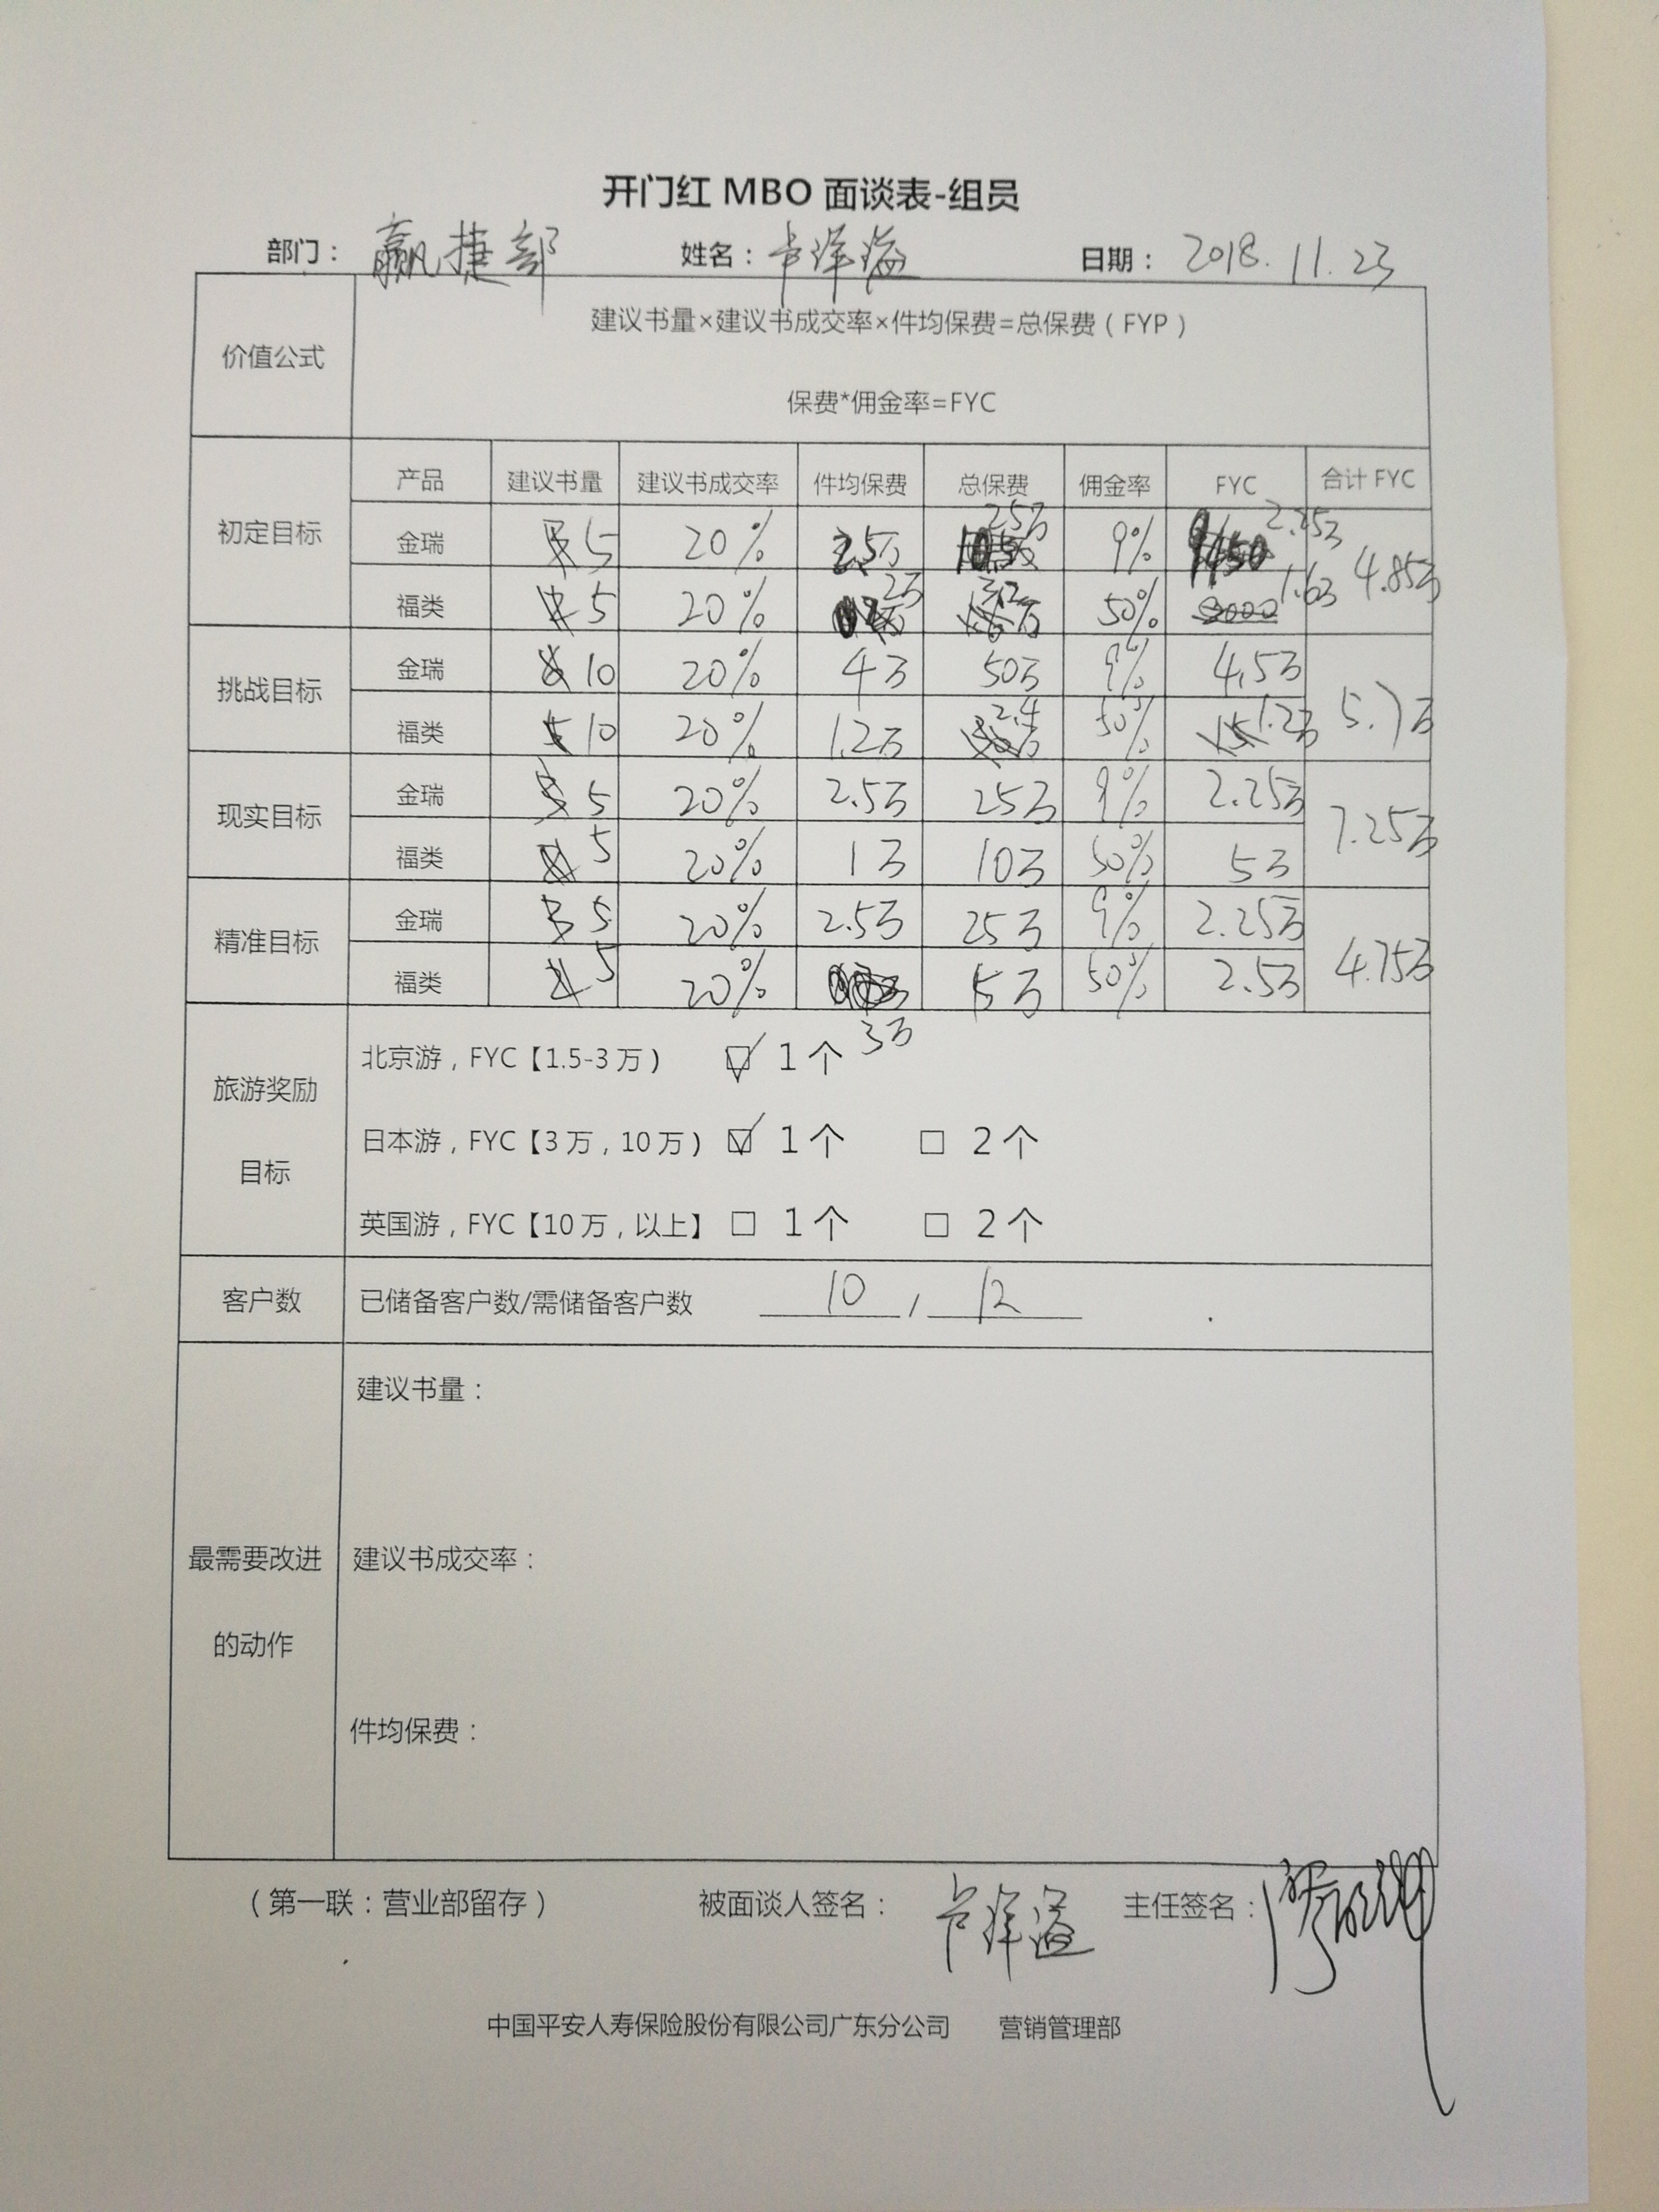 开门红 MBO 面谈表-组员
部门： 赢捷部 姓名： 卢洋溢 日期： 2018.11.23
价值公式 建议书量×建议书成交率×件均保费=总保费（FYP）
保费*佣金率=FYC
产品 建议书量 建议书成交率 件均保费 总保费 佣金率 FYC 合计 FYC
初定目标 金瑞 5 20% 2.5万 25万 9% 2.25万 4.85万
福类 5 20% 2万 50% 1.6万
挑战目标 金瑞 10 20% 4万 50万 9% 4.5万 5.7万
福类 10 20% 1.2万 2.4 50% 1.2万
现实目标 金瑞 5 20% 2.5万 25万 9% 2.25万 7.25万
福类 5 20% 1万 10万 50% 5万
精准目标 金瑞 5 20% 2.5万 25万 9% 2.25万 4.75万
福类 5 20% 3万 5万 50% 2.5万
旅游奖励目标 北京游，FYC【1.5-3万） ☑ 1个
日本游，FYC【3万，10万） ☑ 1个 □ 2个
英国游，FYC【10万，以上】 □ 1个 □ 2个
客户数 已储备客户数/需储备客户数 10 / 12
最需要改进的动作 建议书量：
建议书成交率：
件均保费：
（第一联：营业部留存） 被面谈人签名： 卢洋溢 主任签名：
中国平安人寿保险股份有限公司广东分公司 营销管理部